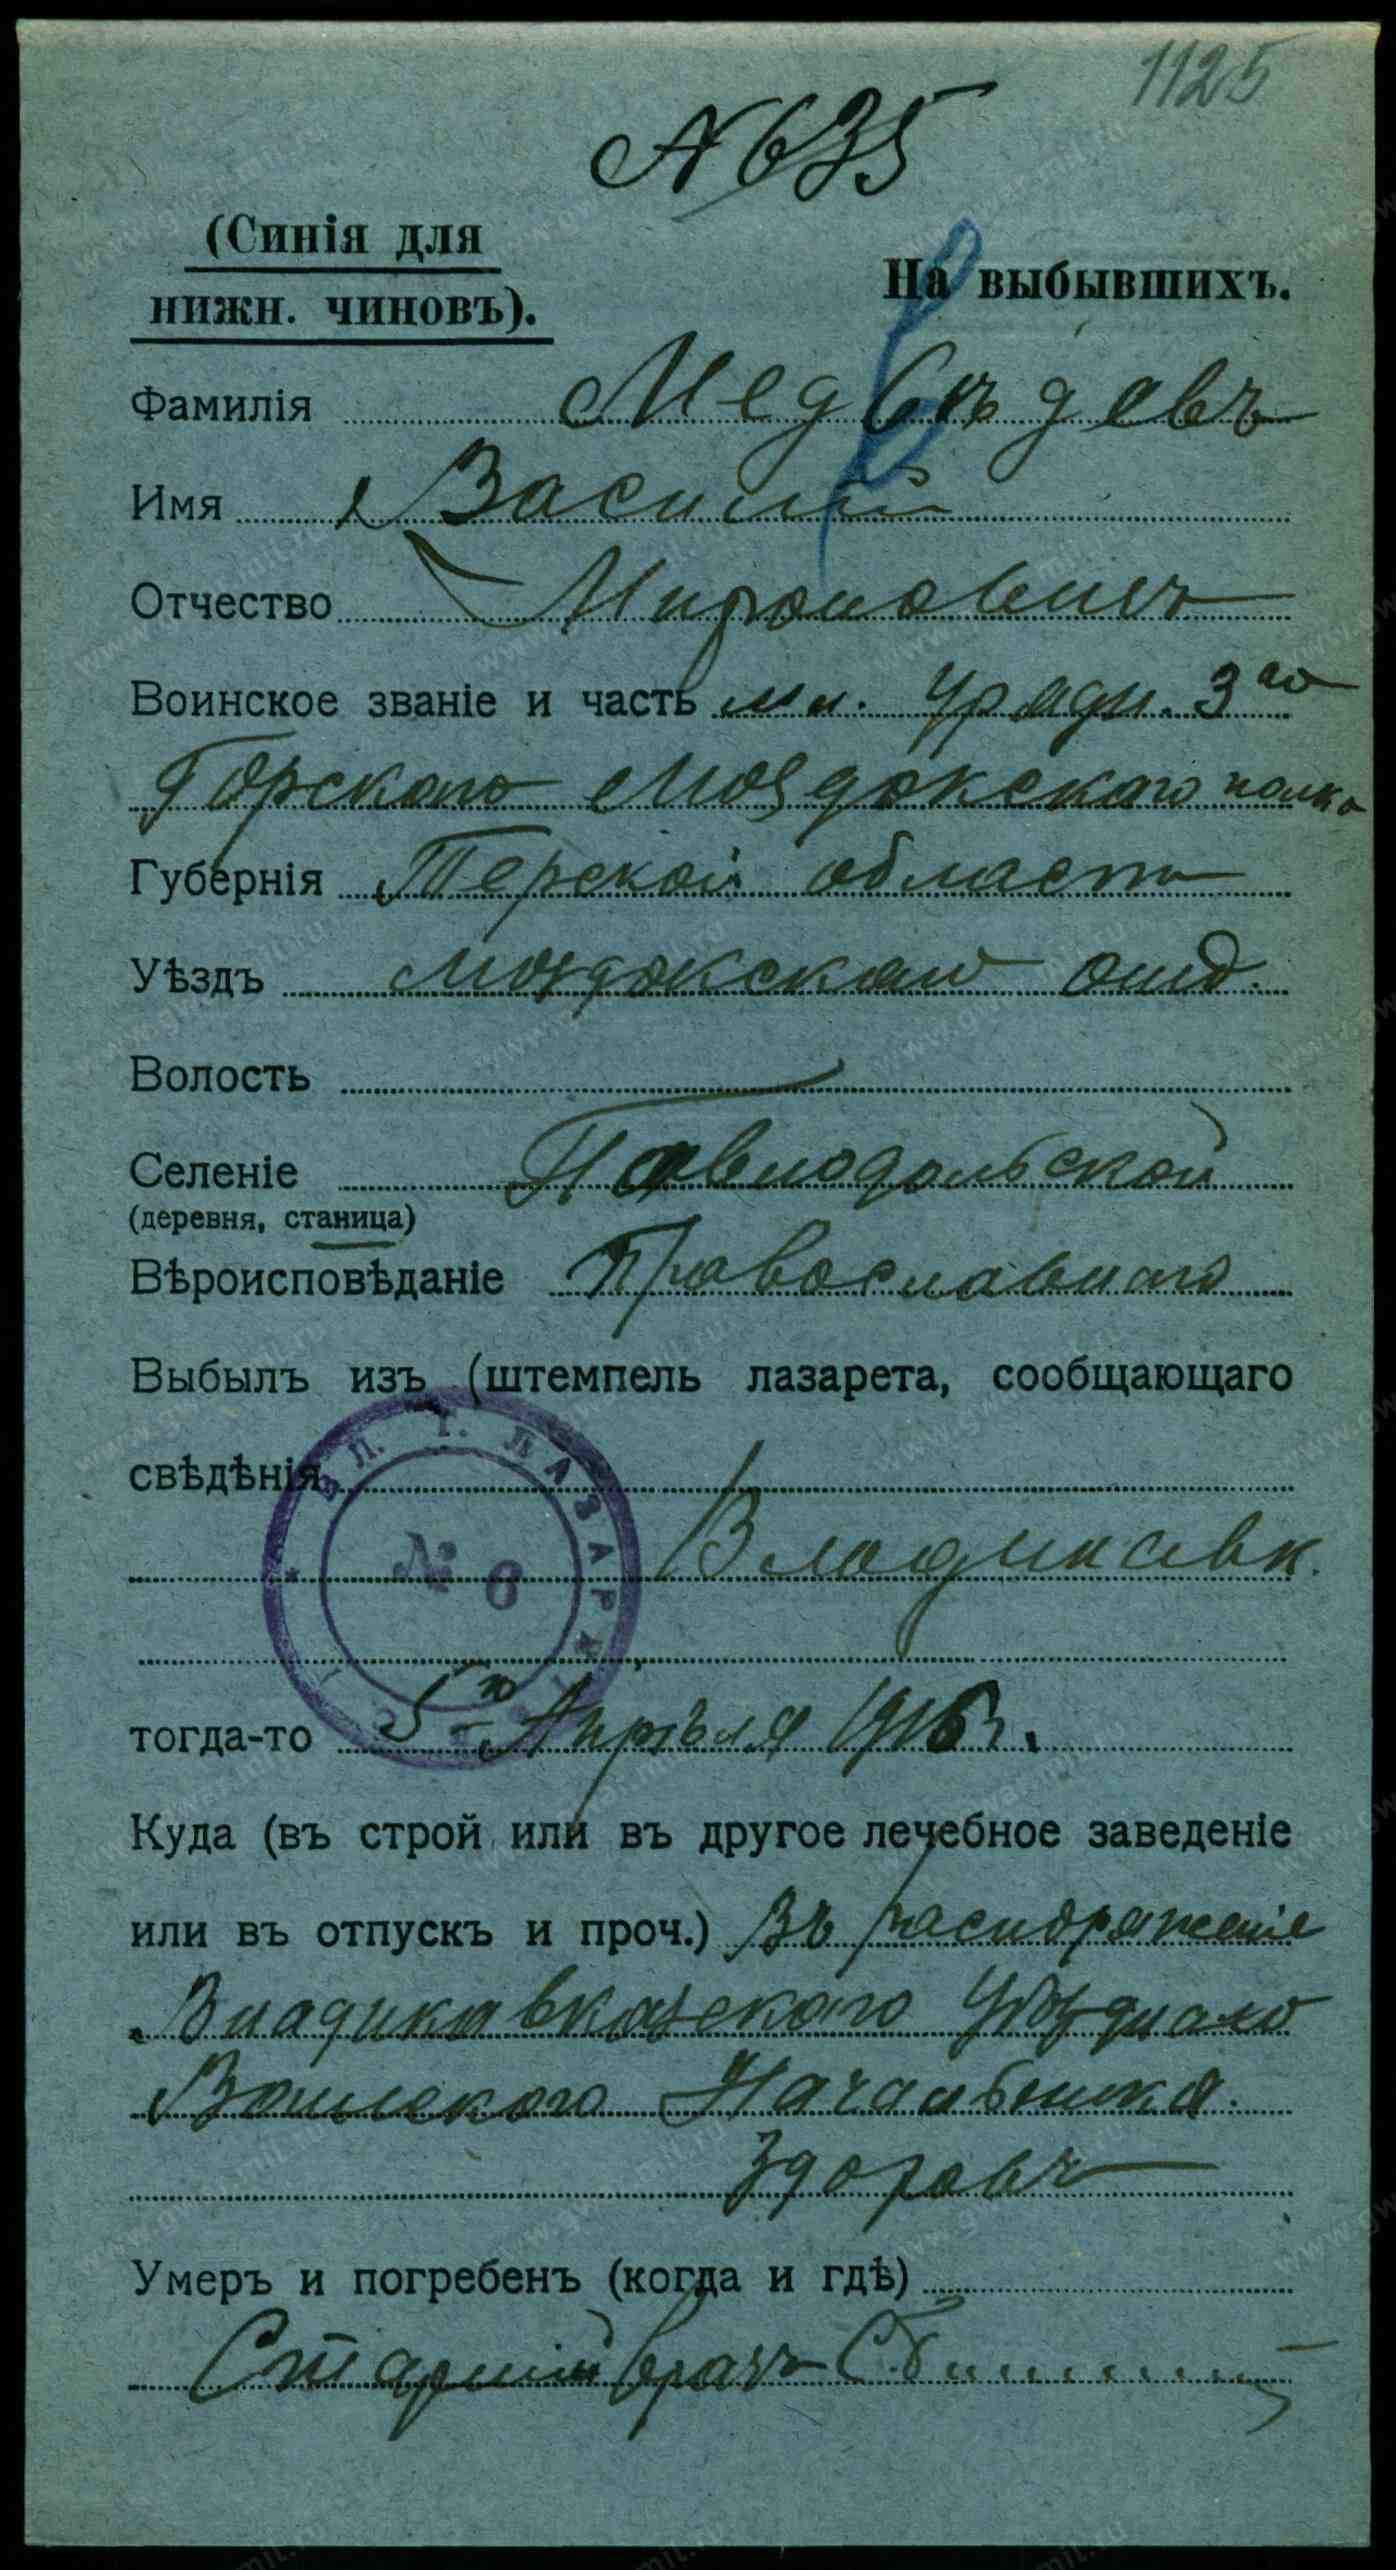 1125
№ 635
(Синія для
нижн. чиновъ).
На выбывшихъ.
Фамилія Медвѣдевъ
Имя Василій
Отчество Мироновичъ
Воинское званіе и часть мл. уряди. 3го
Горского Моздокского полка
Губернія Терской области
Уѣздъ Моздокскаго отд.
Волость
Селеніе Павлодольской
(деревня, станица)
Вѣроисповѣданіе Православнаго
Выбылъ изъ (штемпель лазарета, сообщающаго
свѣдѣнія
ВЛ. Г. ЛАЗАР
№ 6
Владикавк.
тогда-то 5го Апрѣля 1916 г.
Куда (въ строй или въ другое лечебное заведеніе
или въ отпускъ и проч.) Въ распоряженіе
Владикавказского Уѣзднаго
Воинского Начальника.
Здоровъ
Умеръ и погребенъ (когда и гдѣ)
Старшій врачъ